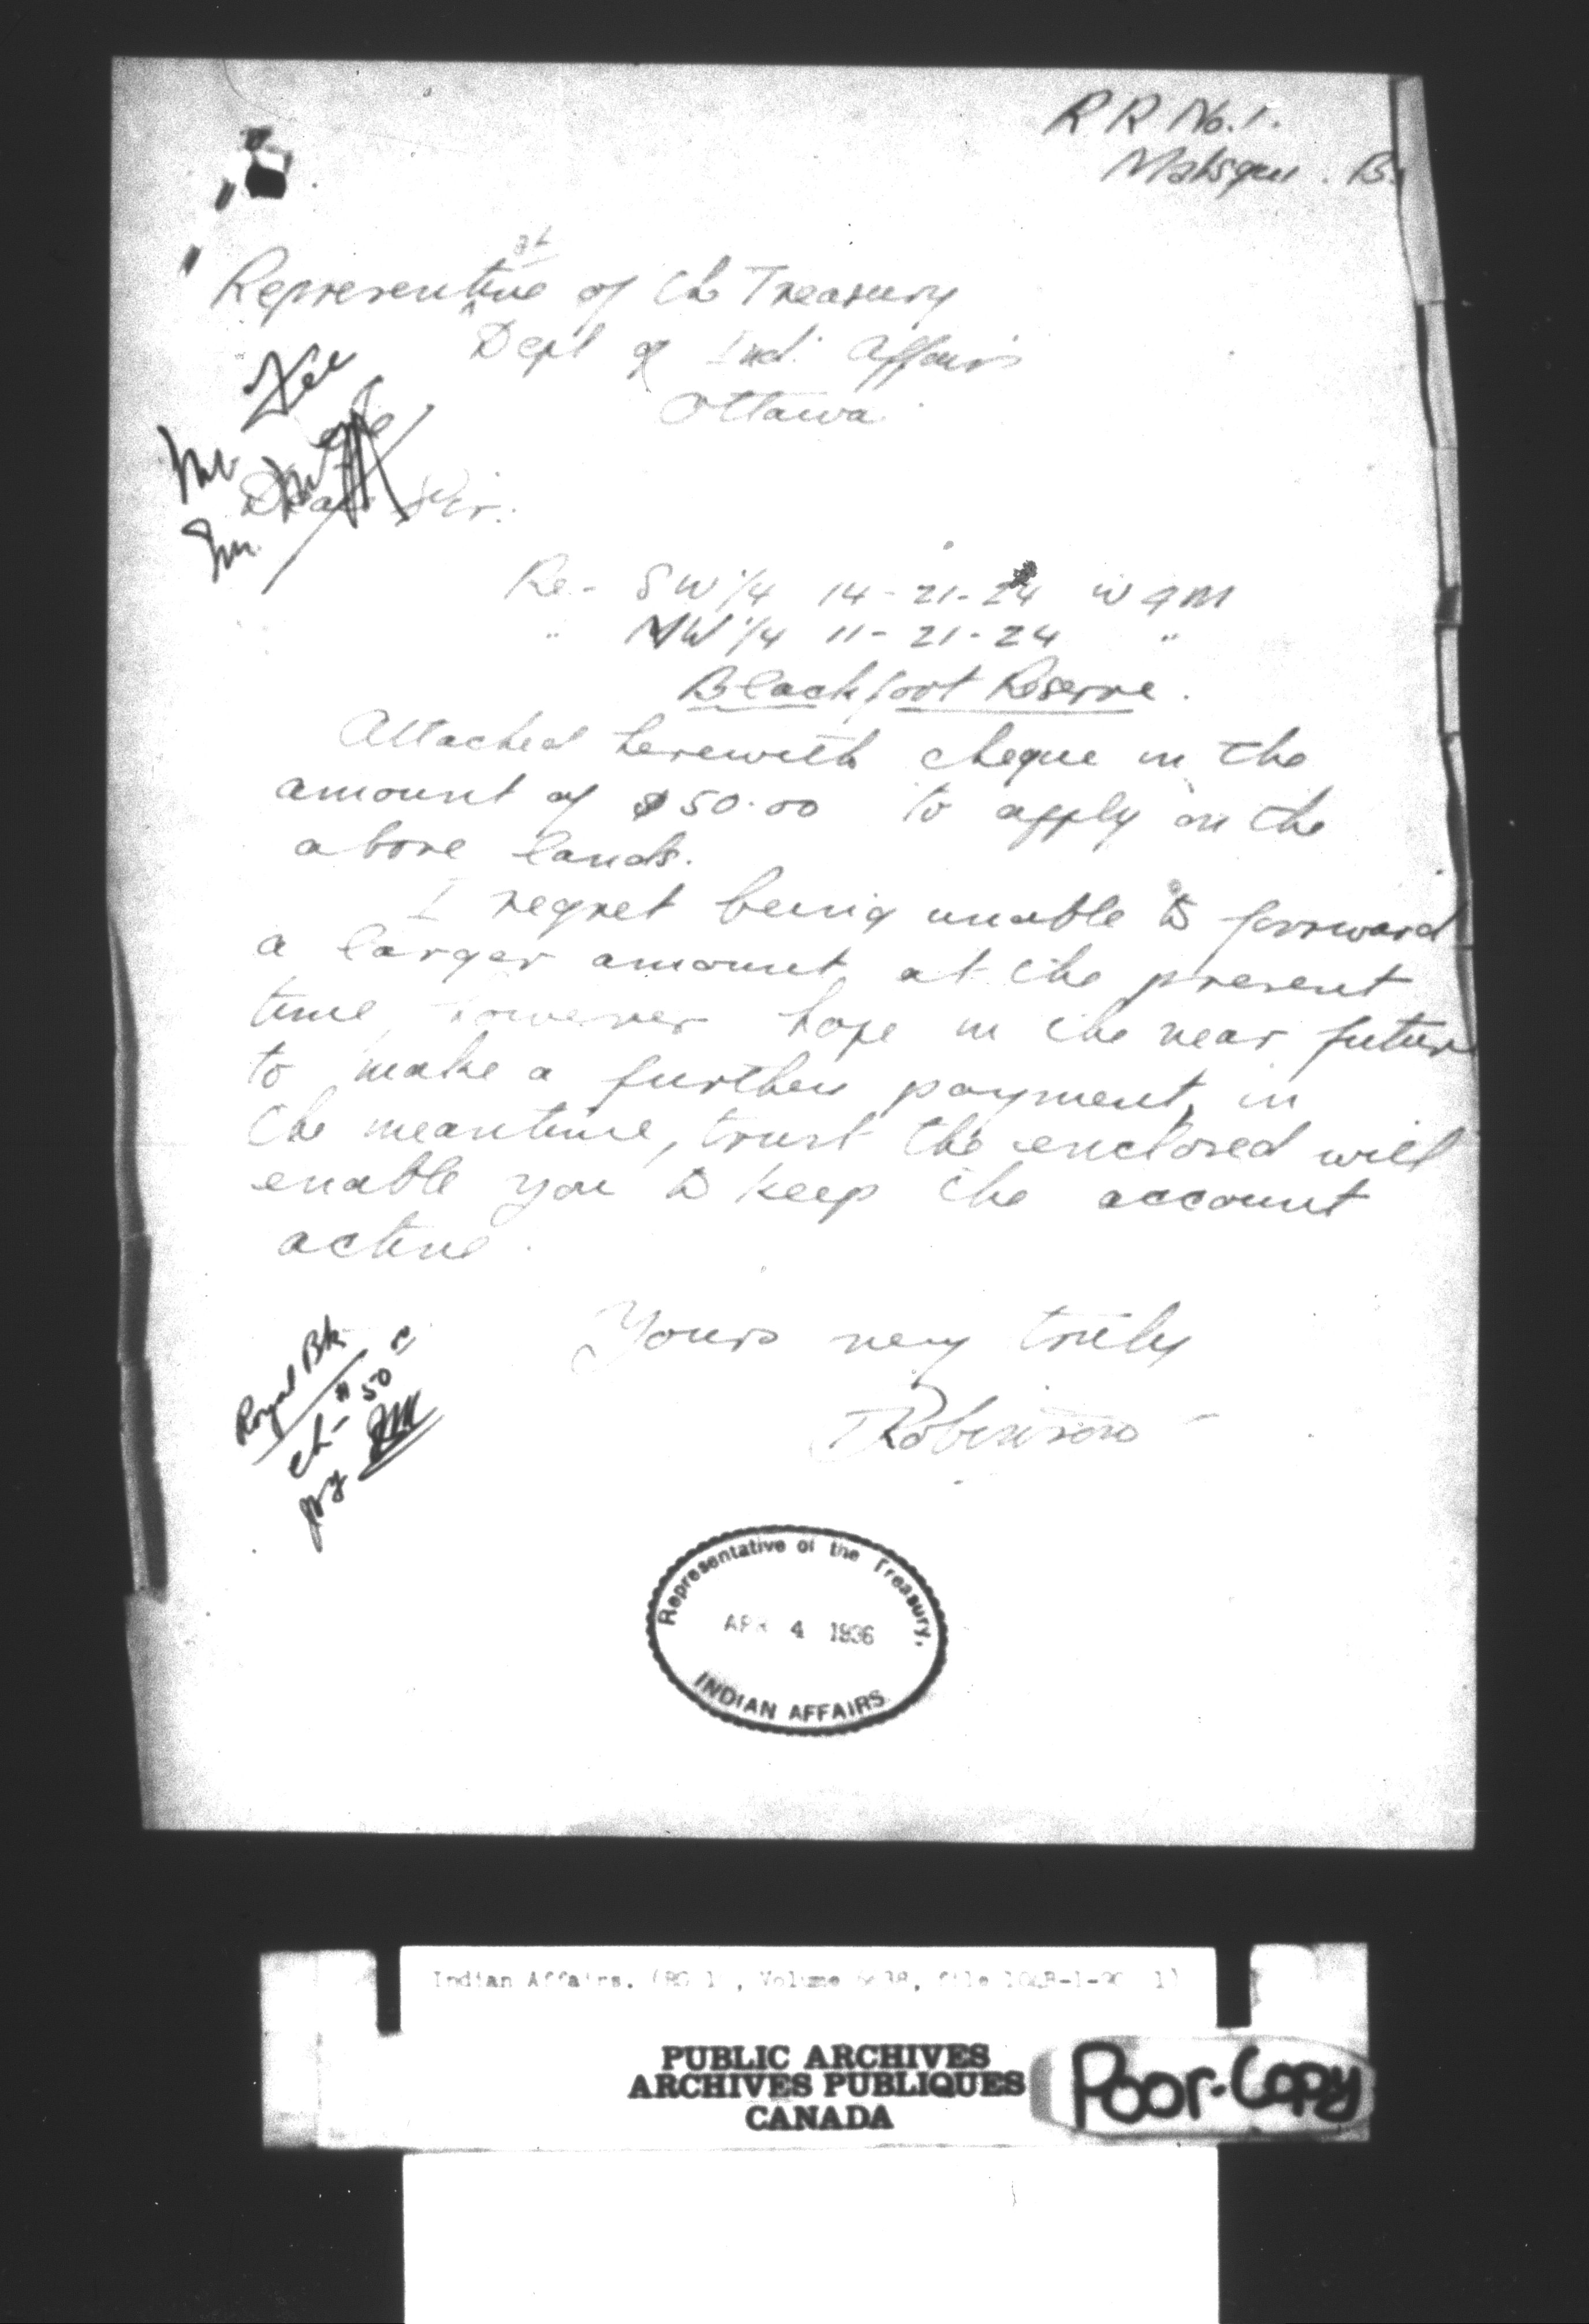 R R No. 1.
Matsqui. B.
at
Representive of the Treasury
Dept of Ind. Affairs
Ottawa
Dear Sir:
Re - SW 1/4 14-21-24 W 4 M
" NW 1/4 11-21-24 "
Blackfoot Reserve.
Attached herewith cheque in the
amount of $50.00 to apply on the
above lands.
I regret being unable to forward
a larger amount, at the present
time, however hope in the near future
to make a further payment, in
the meantime, trust the enclosed will
enable you to keep the account
active.
Yours very truly
Robinson
Royal Bk
ch - $50
Representative of the Treasury,
APR 4 1936
INDIAN AFFAIRS
Indian Affairs. (RG 1 , Volume
PUBLIC ARCHIVES
ARCHIVES PUBLIQUES
CANADA
Poor-Copy